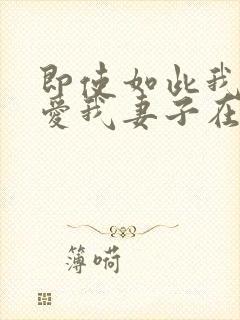 即使如此我
爱我妻子在
簿嗬